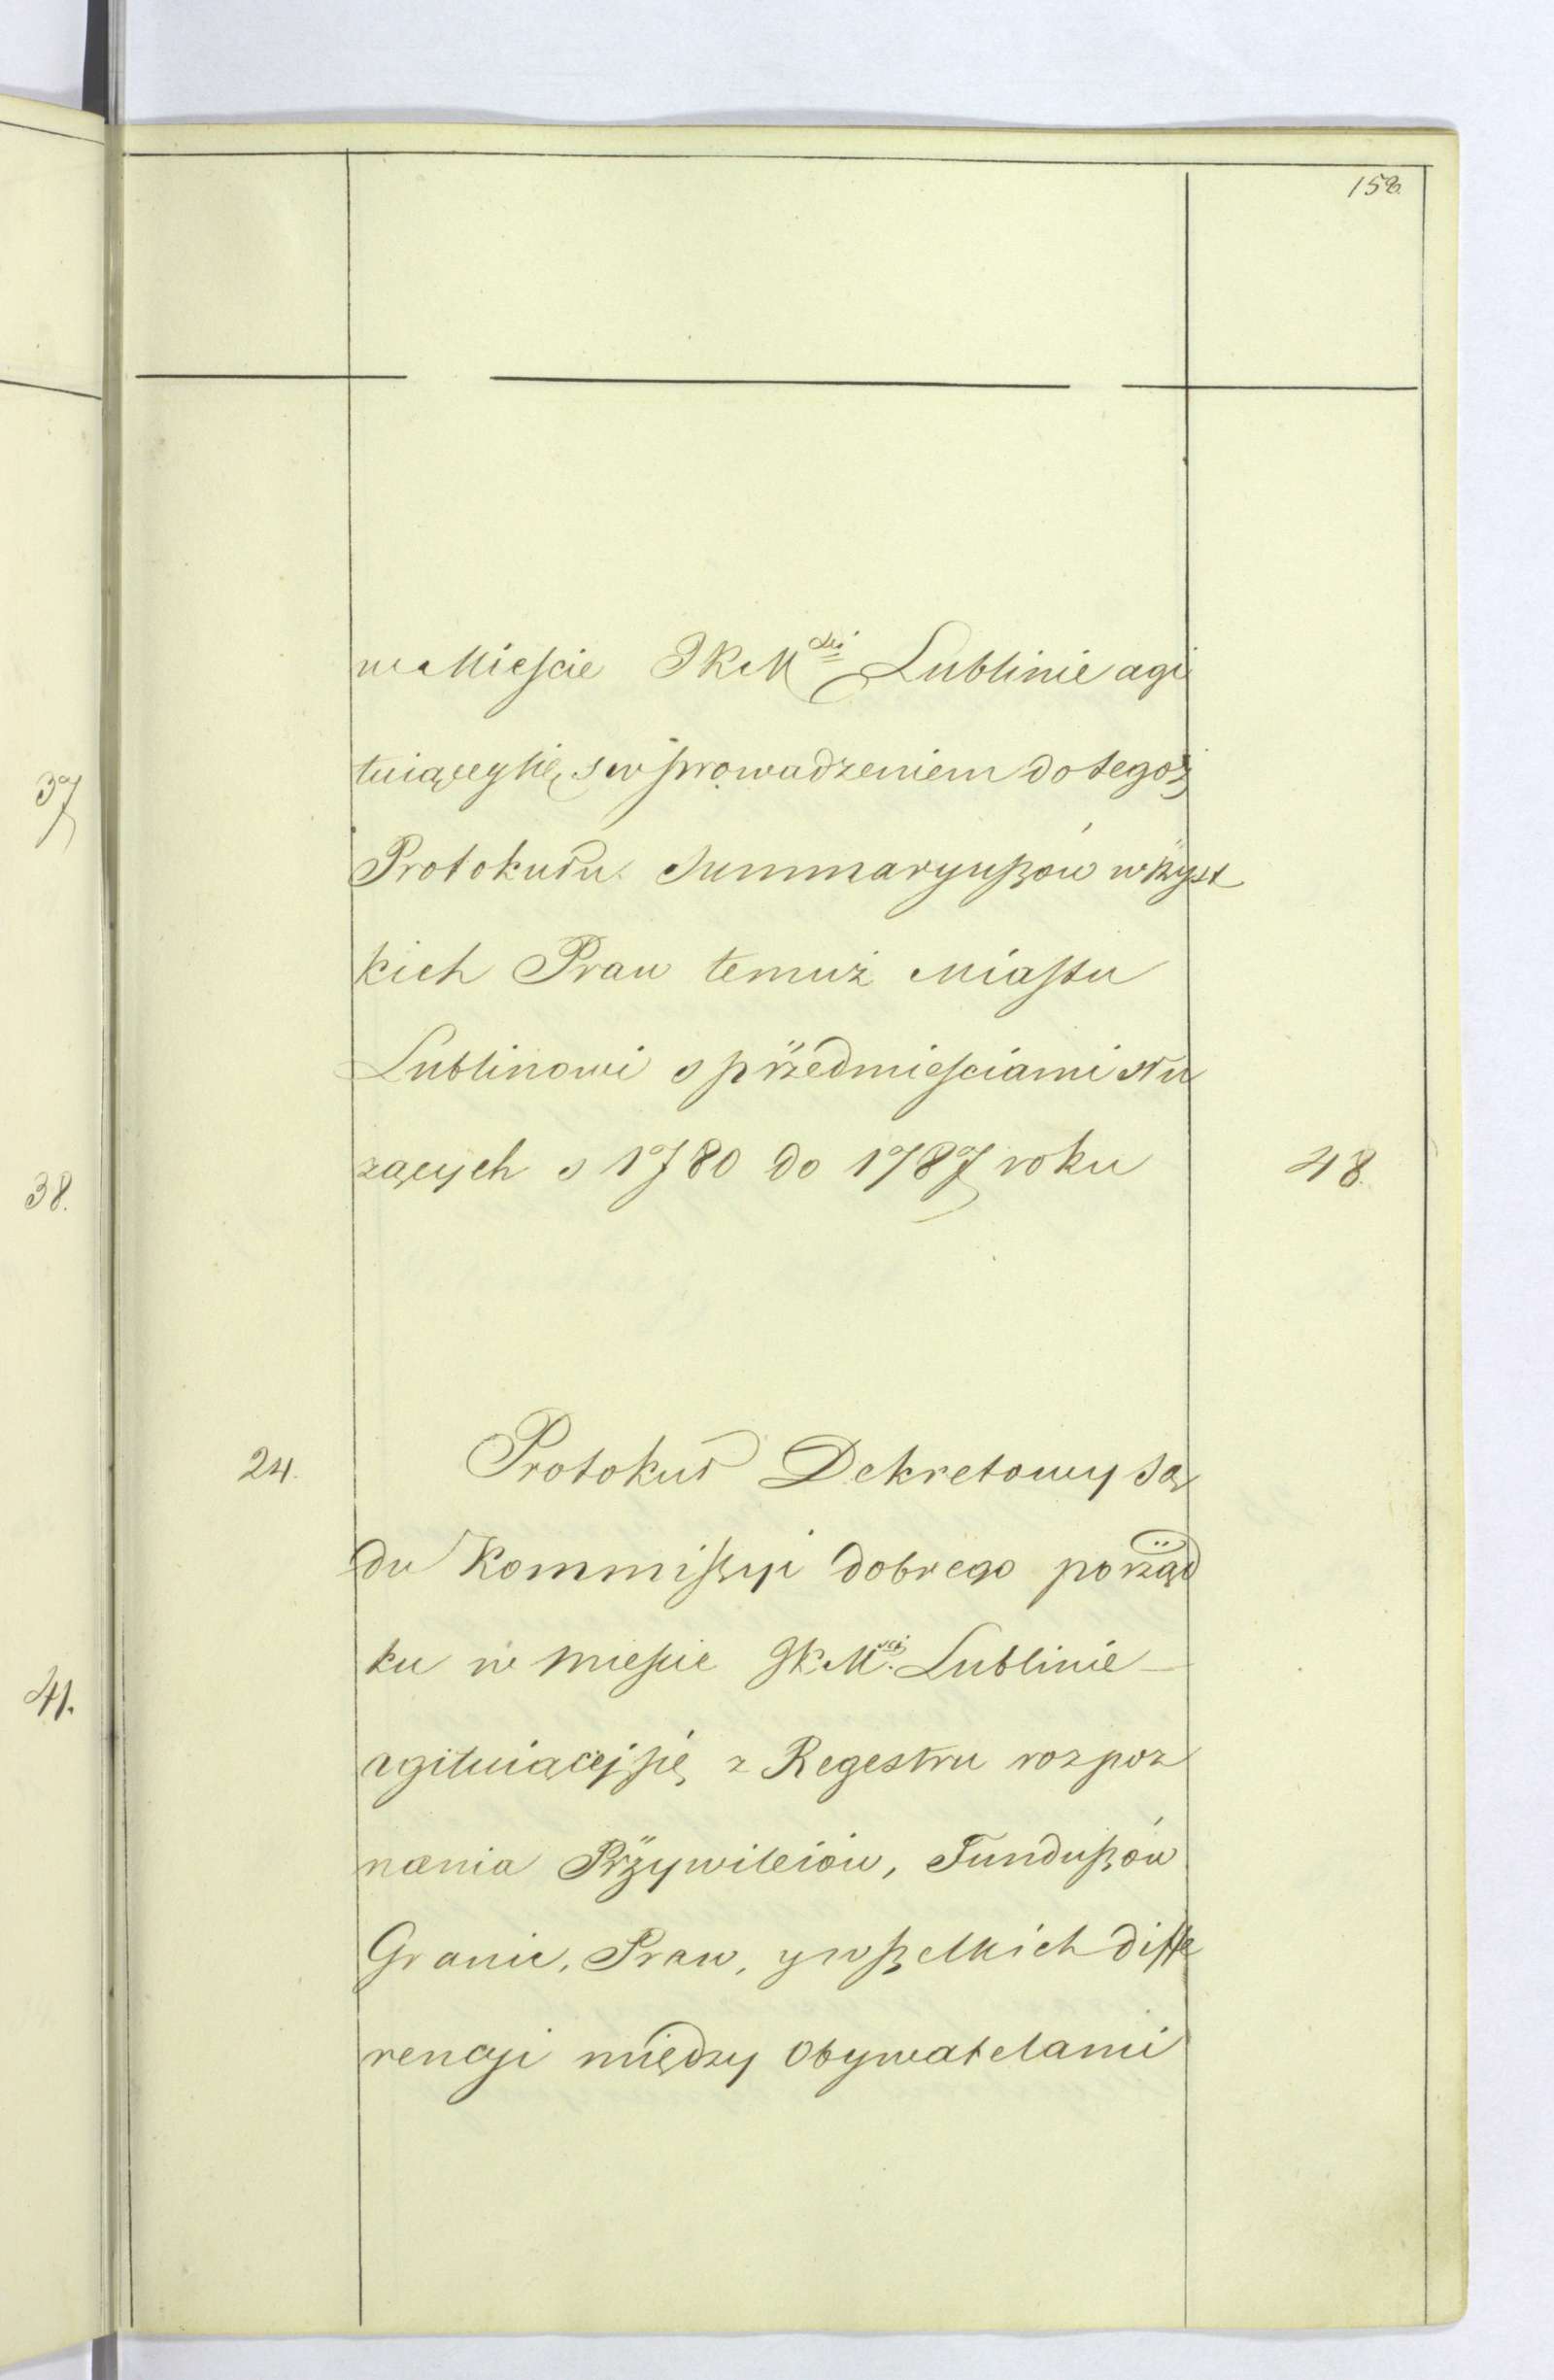 158.
w Mieście JKM<sup>ści</sup> Lublinie agi
tuiącey się, s wprowadzeniem do tegoż
Protokułu Summaryuszów wszyst
kich Praw temuż Miastu
Lublinowi s przedmieściami słu
żących s 1780 do 1787 roku 48.
24. Protokuł Dekretowy Są
du Kommissyi dobrego porząd
ku w Mieście JKM<sup>sci</sup>. Lublinie
agituiącej się z Regestru rozpoz
nania Przywileiów, Funduszów
Granic, Praw, y wszelkich diffe
rencyi między Obywatelami
37
38.
41.